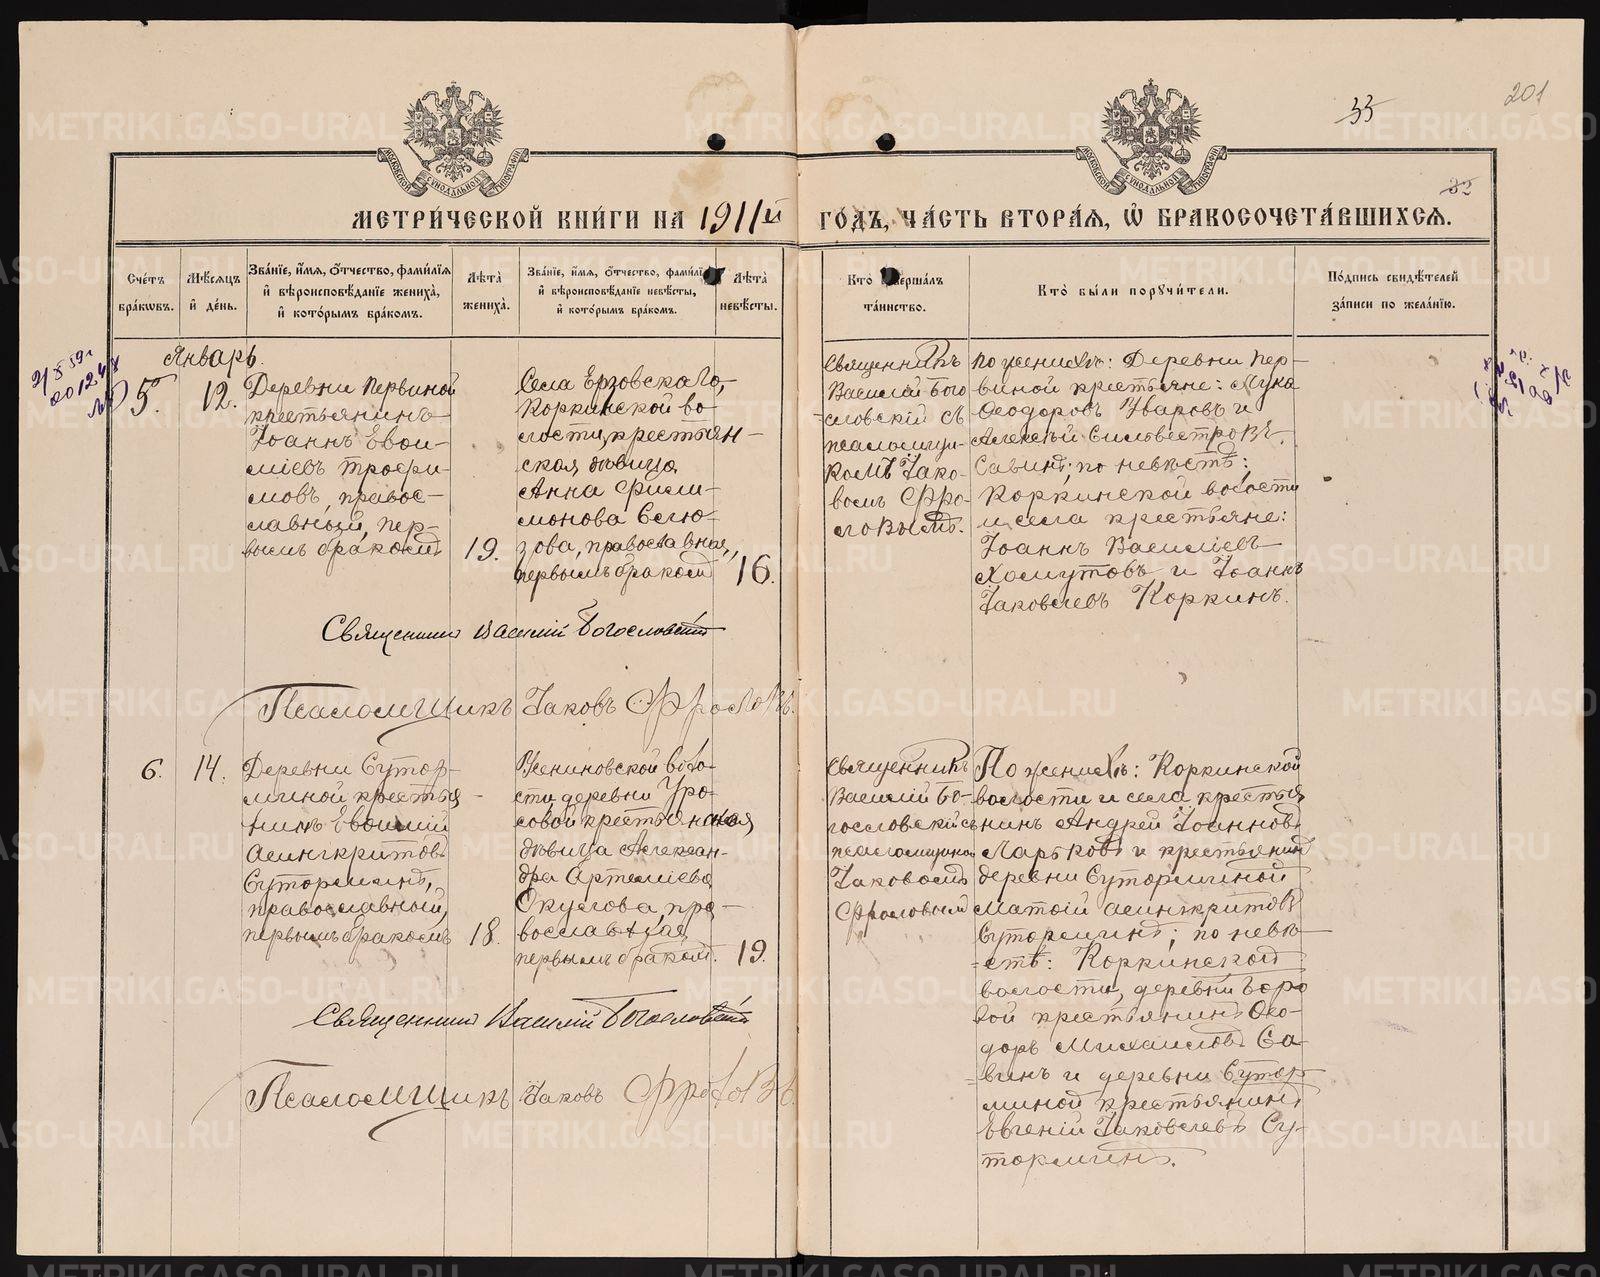 201
33
32
МОСКОВСКОЙ СѴНОДАЛЬНОЙ ТИПОГРАФІИ
МОСКОВСКОЙ СѴНОДАЛЬНОЙ ТИПОГРАФІИ
МЕТРИ́ЧЕСКОЙ КНИ́ГИ НА 1911й
ГО́ДЪ, ЧА́СТЬ ВТОРА́Я, Ѿ БРАКОСОЧЕТА́ВШИХСЯ.
Сче́тъ
бра́кѡвъ.
Мѣ́сяцъ
и҆ де́нь.
Зва́нїе, и҆́мя, ѻ҆́тчество, фами́лїя
и҆ вѣроисповѣ́данїе жениха̀,
и҆ кото́рымъ бра́комъ.
Лѣ́та
жениха̀.
Зва́нїе, и҆́мя, ѻ҆́тчество, фами́лїя
и҆ вѣроисповѣ́данїе невѣ́сты,
и҆ кото́рымъ бра́комъ.
Лѣ́та
невѣ́сты.
Кто̀ соверша́лъ
та́инство.
Кто̀ бы́ли порꙋчи́тели.
По́дпись свидѣ́телей
за́писи по жела́нїю.
Январь.
5.
12.
Деревни Первиной
крестьянинъ
Іоаннъ Евѳи-
міевъ Трофи-
мовъ, правос-
лавный, пер-
вымъ бракомъ
19.
Села Ерзовскаго,
Коркинской во-
лости, крестьян-
ская дѣвица
Анна Фили-
монова Селю-
зова, православная,
первымъ бракомъ
16.
Священникъ
Василій Бого
словскій съ
псаломщи-
комъ Іако-
вомъ Фро-
ловымъ.
По женихѣ: Деревни Пер-
виной крестьяне: Лука
Ѳеодоровъ Уваровъ и
Алексѣй Сильвестровъ
Савинъ; по невѣстѣ:
Коркинской волости
и села крестьяне:
Іоаннъ Василіевъ
Хомутовъ и Іоаннъ
Іаковлевъ Коркинъ.
Священникъ Василій Богословскій
Псаломщикъ Іаковъ Фроловъ.
6.
14.
Деревни Сутор-
миной крестья-
нинъ Евѳимій
Асигкритовъ
Суторминъ,
православный,
первымъ бракомъ
18.
Усениновской воло-
сти деревни Уро-
совой крестьянская
дѣвица Алексан-
дра Артеміева
Окулова, пра-
вославная,
первымъ бракомъ.
19.
Священникъ
Василій Бо-
гословскій съ
псаломщикомъ
Іаковомъ
Фроловымъ
По женихѣ: Коркинской
волости и села крестья
нинъ Андрей Іоанновъ
Ларьковъ и крестьянинъ
деревни Суторминой
Матѳій Асигкритовъ
Суторминъ; по невѣ-
стѣ: Коркинской
волости, деревни Боро
вой крестьянинъ Ѳео-
доръ Михаиловъ Са-
винъ и деревни Сутор-
миной крестьянинъ
Евгеній Іаковлевъ Су-
торминъ.
Священникъ Василій Богословскій
Псаломщикъ Іаковъ Фроловъ.
METRIKI.GASO-URAL.RU